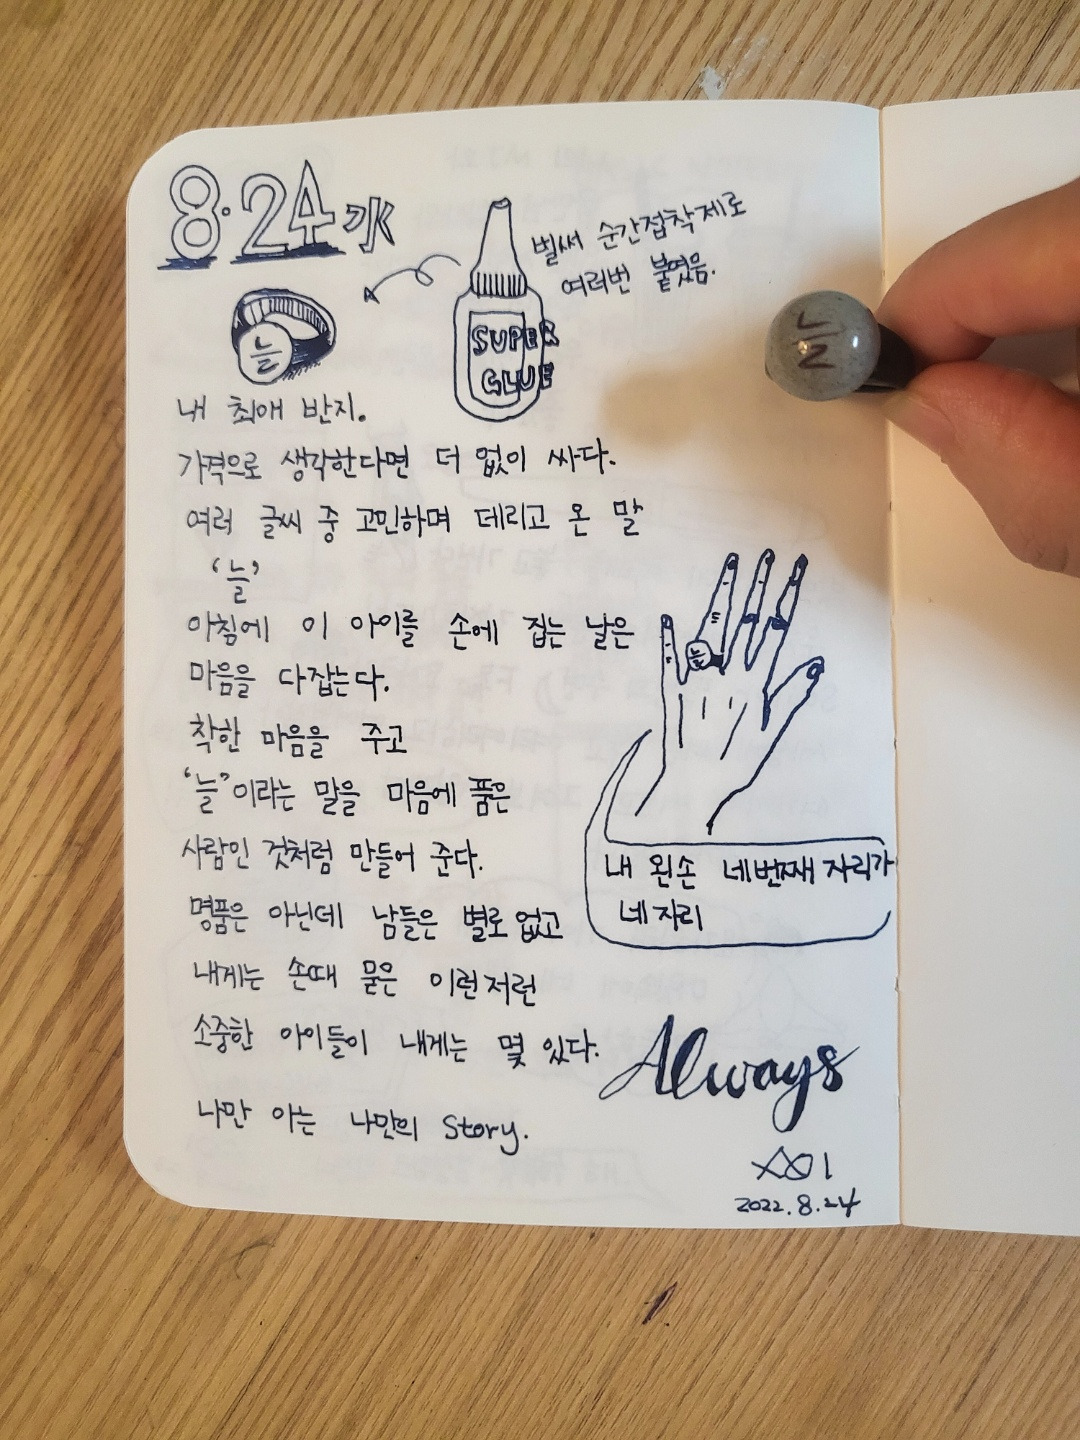 8.24 水
벌써 순간접착제로
여러번 붙였음.
SUPER
GLUE
늘
늘
내 최애 반지.
가격으로 생각한다면 더 없이 싸다.
여러 글씨 중 고민하며 데리고 온 말
'늘'
아침에 이 아이를 손에 집는 날은
마음을 다잡는다.
착한 마음을 주고
"늘"이라는 말을 마음에 품은
사람인 것처럼 만들어 준다.
명품은 아닌데 남들은 별로 없고
내게는 손때 묻은 이런저런
소중한 아이들이 내게는 몇 있다.
나만 아는 나만의 Story.
늘
내 왼손 네번째 자리가
네 자리
Always
2022.8.24